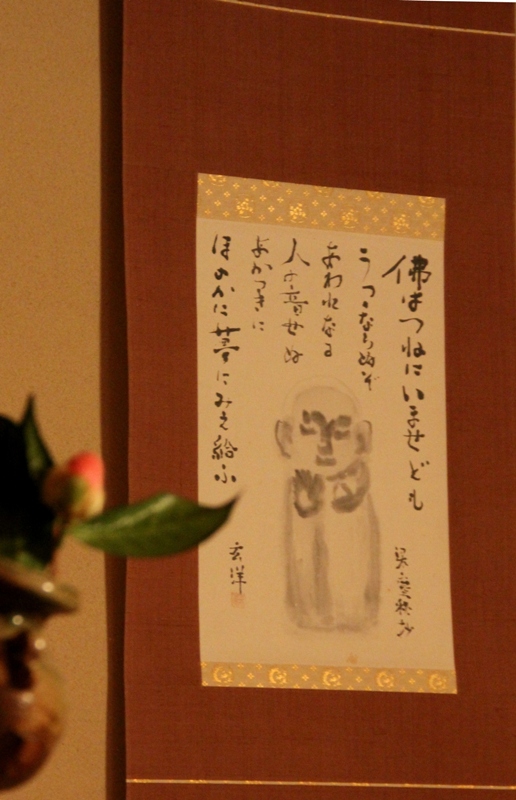 佛はつねにいませども
うつゝならぬぞ
あわれなる
人の音せぬ
あかつきに
ほのかに夢にみえ給ふ
梁塵秘抄
玄洋